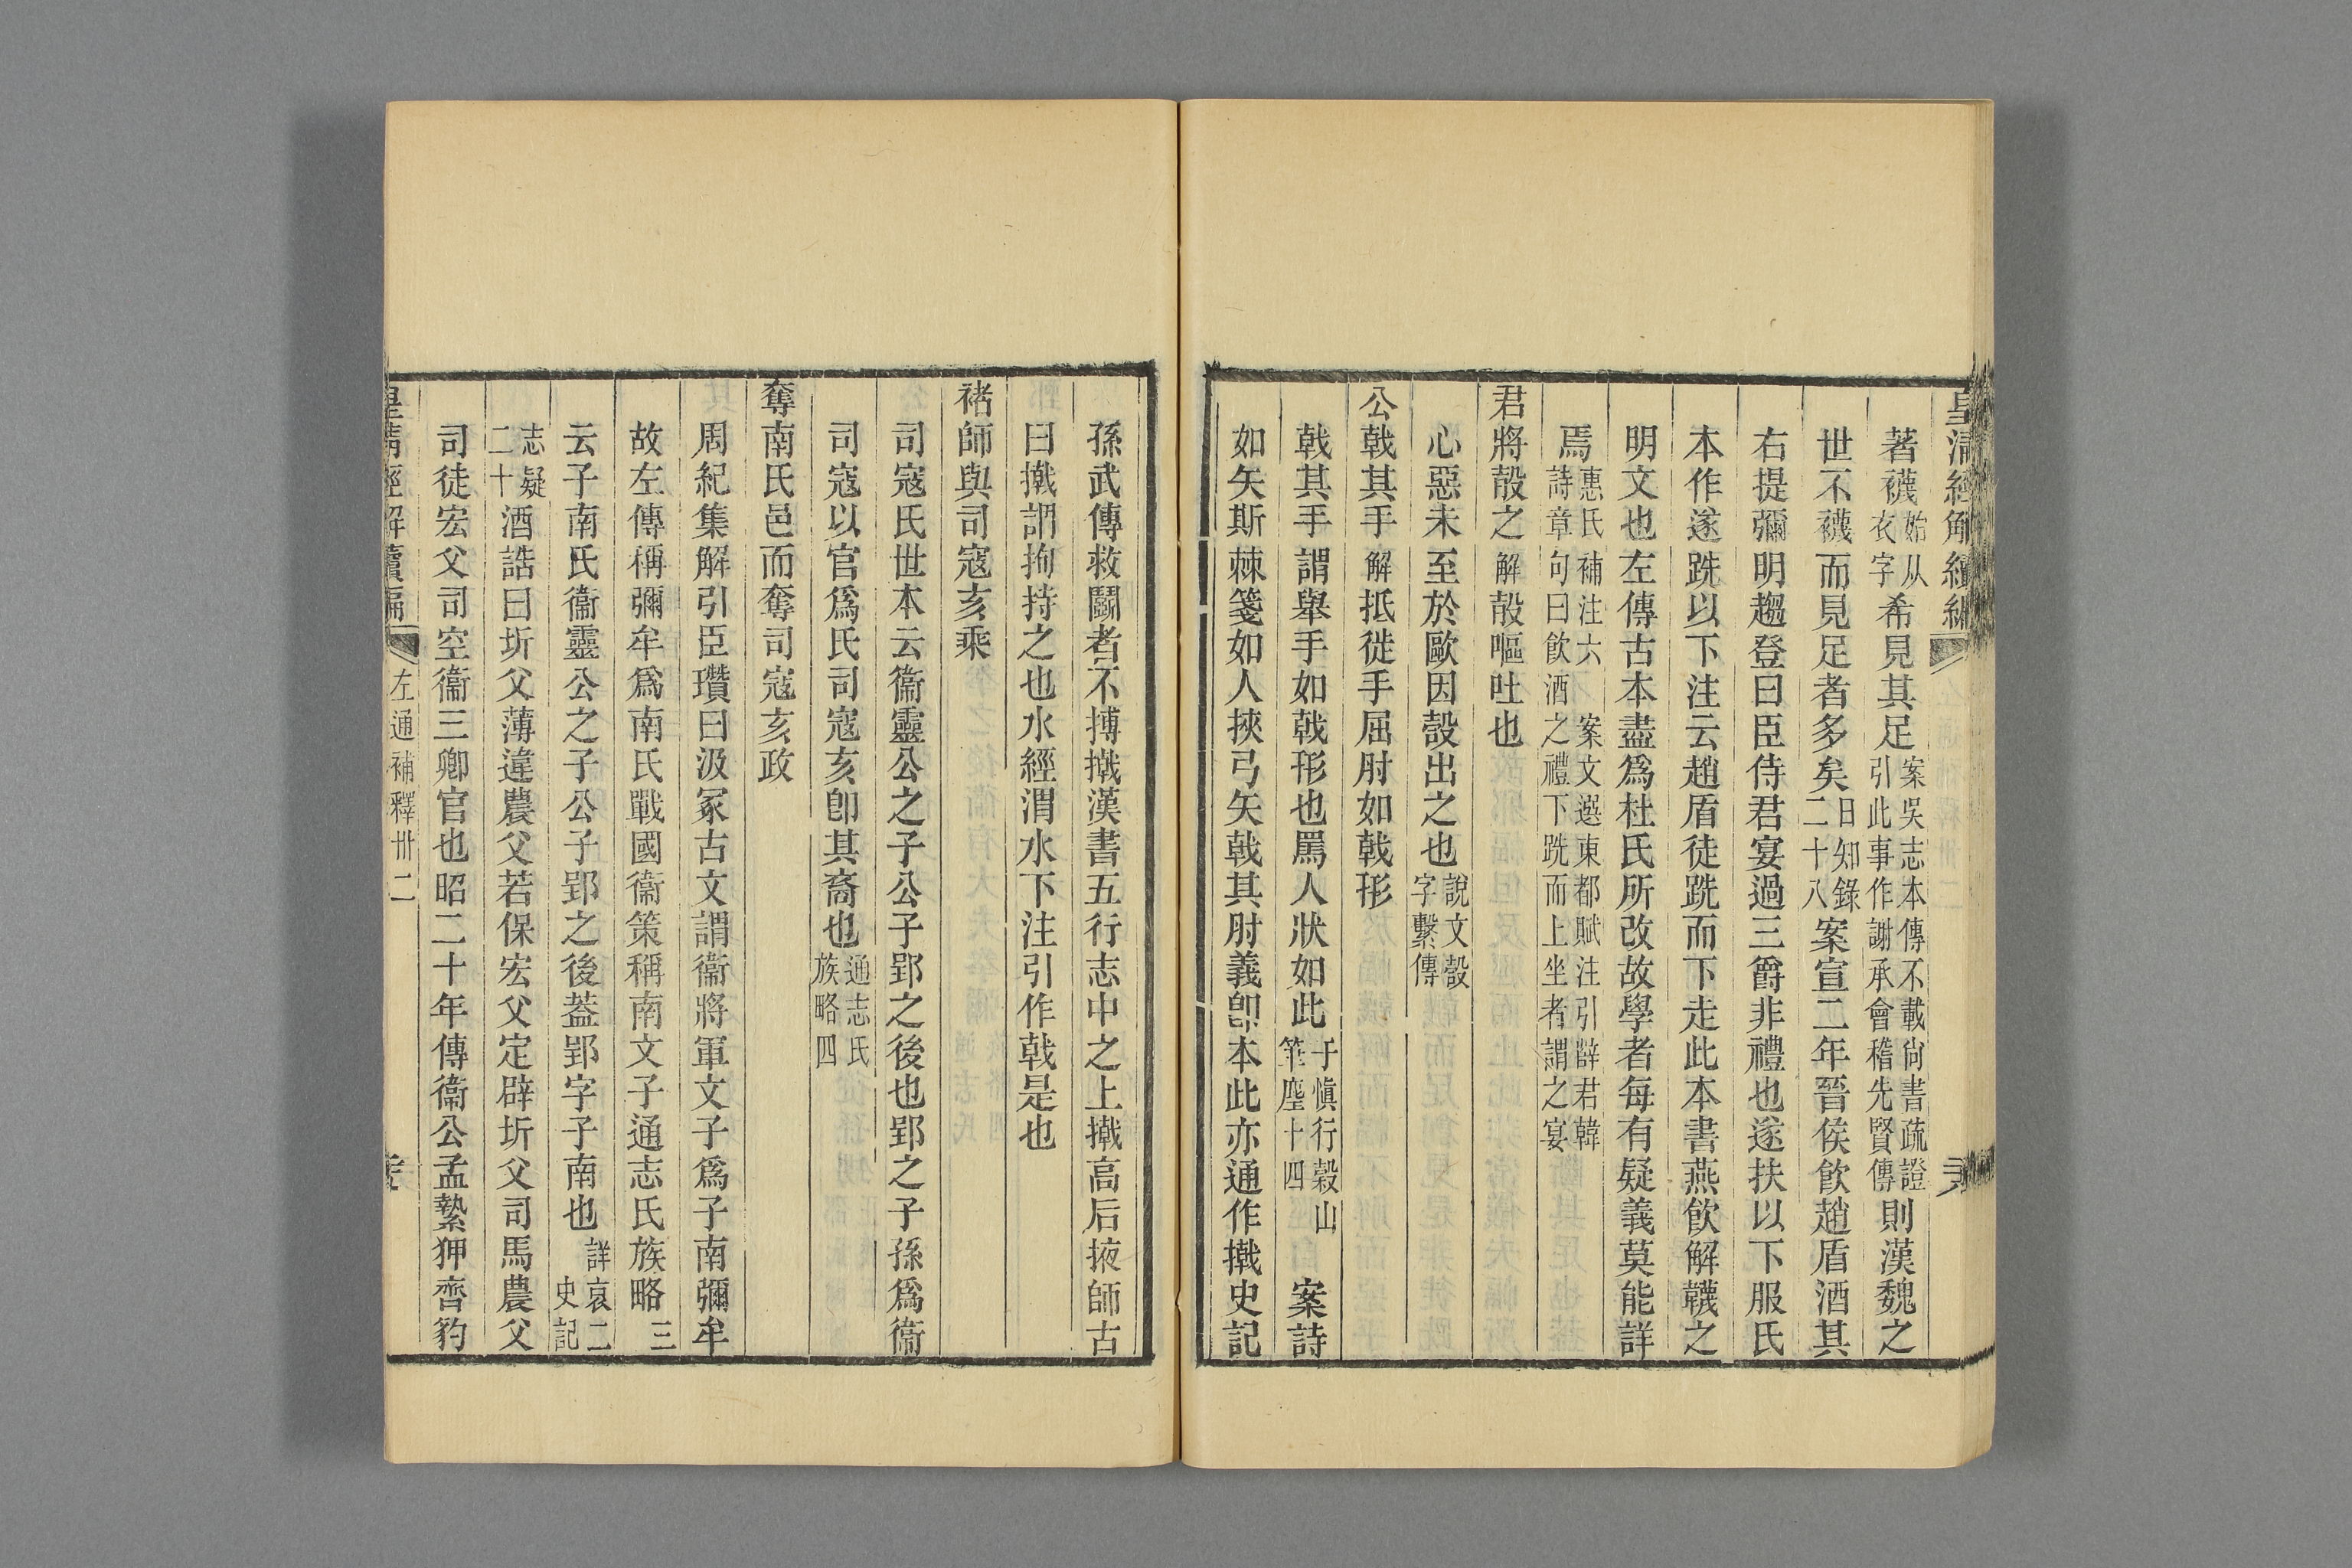 皇清經解續編
著襪始从衣字希見其足案吳志本傳不載尙書疏證引此事作謝承會稽先賢傳則漢魏之
世不襪而見足者多矣日知錄二十八案宣二年晉侯飮趙盾酒其
右提彌明趨登曰臣侍君宴過三爵非禮也遂扶以下服氏
本作遂跣以下注云趙盾徒跣而下走此本書燕飮解韈之
明文也左傳古本盡爲杜氏所改故學者每有疑義莫能詳
焉惠氏補注六 案文選東都賦注引薛君韓詩章句曰飮酒之禮下跣而上坐者謂之宴
君將㱿之解㱿嘔吐也
心惡未至於歐因㱿出之也說文㱿字繫傳
公戟其手解抵徙手屈肘如戟形
戟其手謂舉手如戟形也罵人狀如此于愼行穀山筆麈十四 案詩
如矢斯棘箋如人挾弓矢戟其肘義卽本此亦通作撠史記
孫武傳救鬭者不搏撠漢書五行志中之上撠高后掖師古
曰撠謂拘持之也水經渭水下注引作戟是也
褚師與司寇亥乘
司寇氏世本云衞靈公之子公子郢之後也郢之子孫爲衞
司寇以官爲氏司寇亥卽其裔也通志氏族略四
奪南氏邑而奪司寇亥政
周紀集解引臣瓚曰汲冢古文謂衞將軍文子爲子南彌牟
故左傳稱彌牟爲南氏戰國衞策稱南文子通志氏族略三
云子南氏衞靈公之子公子郢之後蓋郢字子南也詳哀二 史記
志疑二十酒誥曰圻父薄違農父若保宏父定辟圻父司馬農父
司徒宏父司空衞三卿官也昭二十年傳衞公孟縶狎齊豹
皇淸經解續編 左通補釋卅二